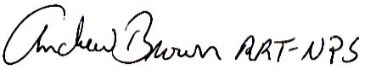 Andrew Brown RRT-NPS